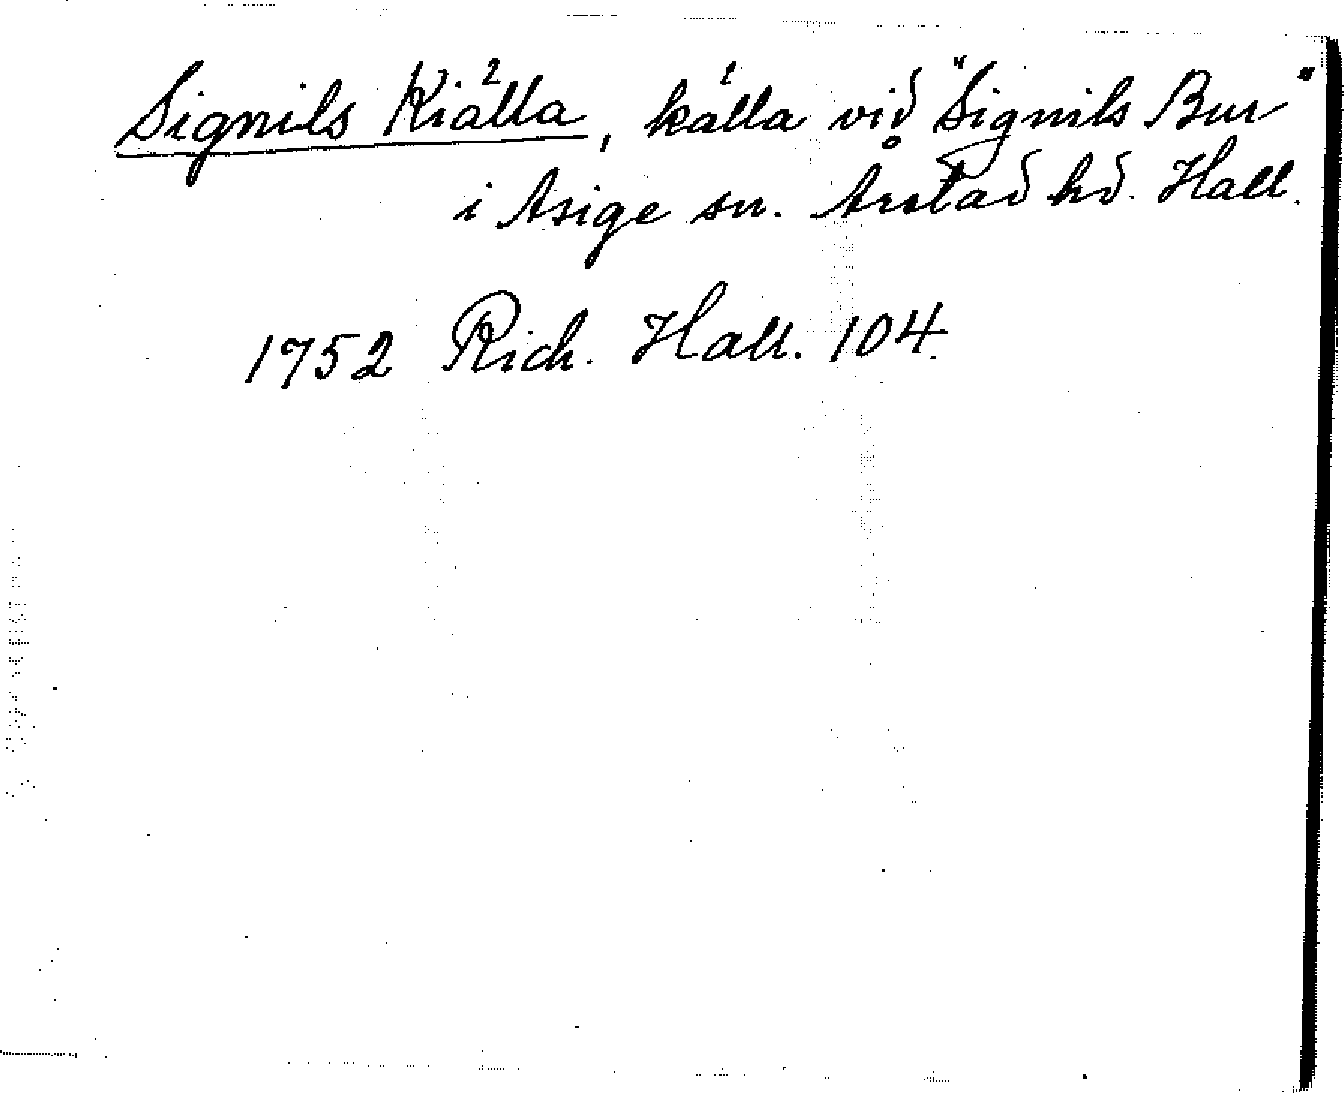 Signils Kiälla, källa vid "Signils Bur"
i Asige sn. Årstad hd. Hall.
1752 Rich. Hall. 104.